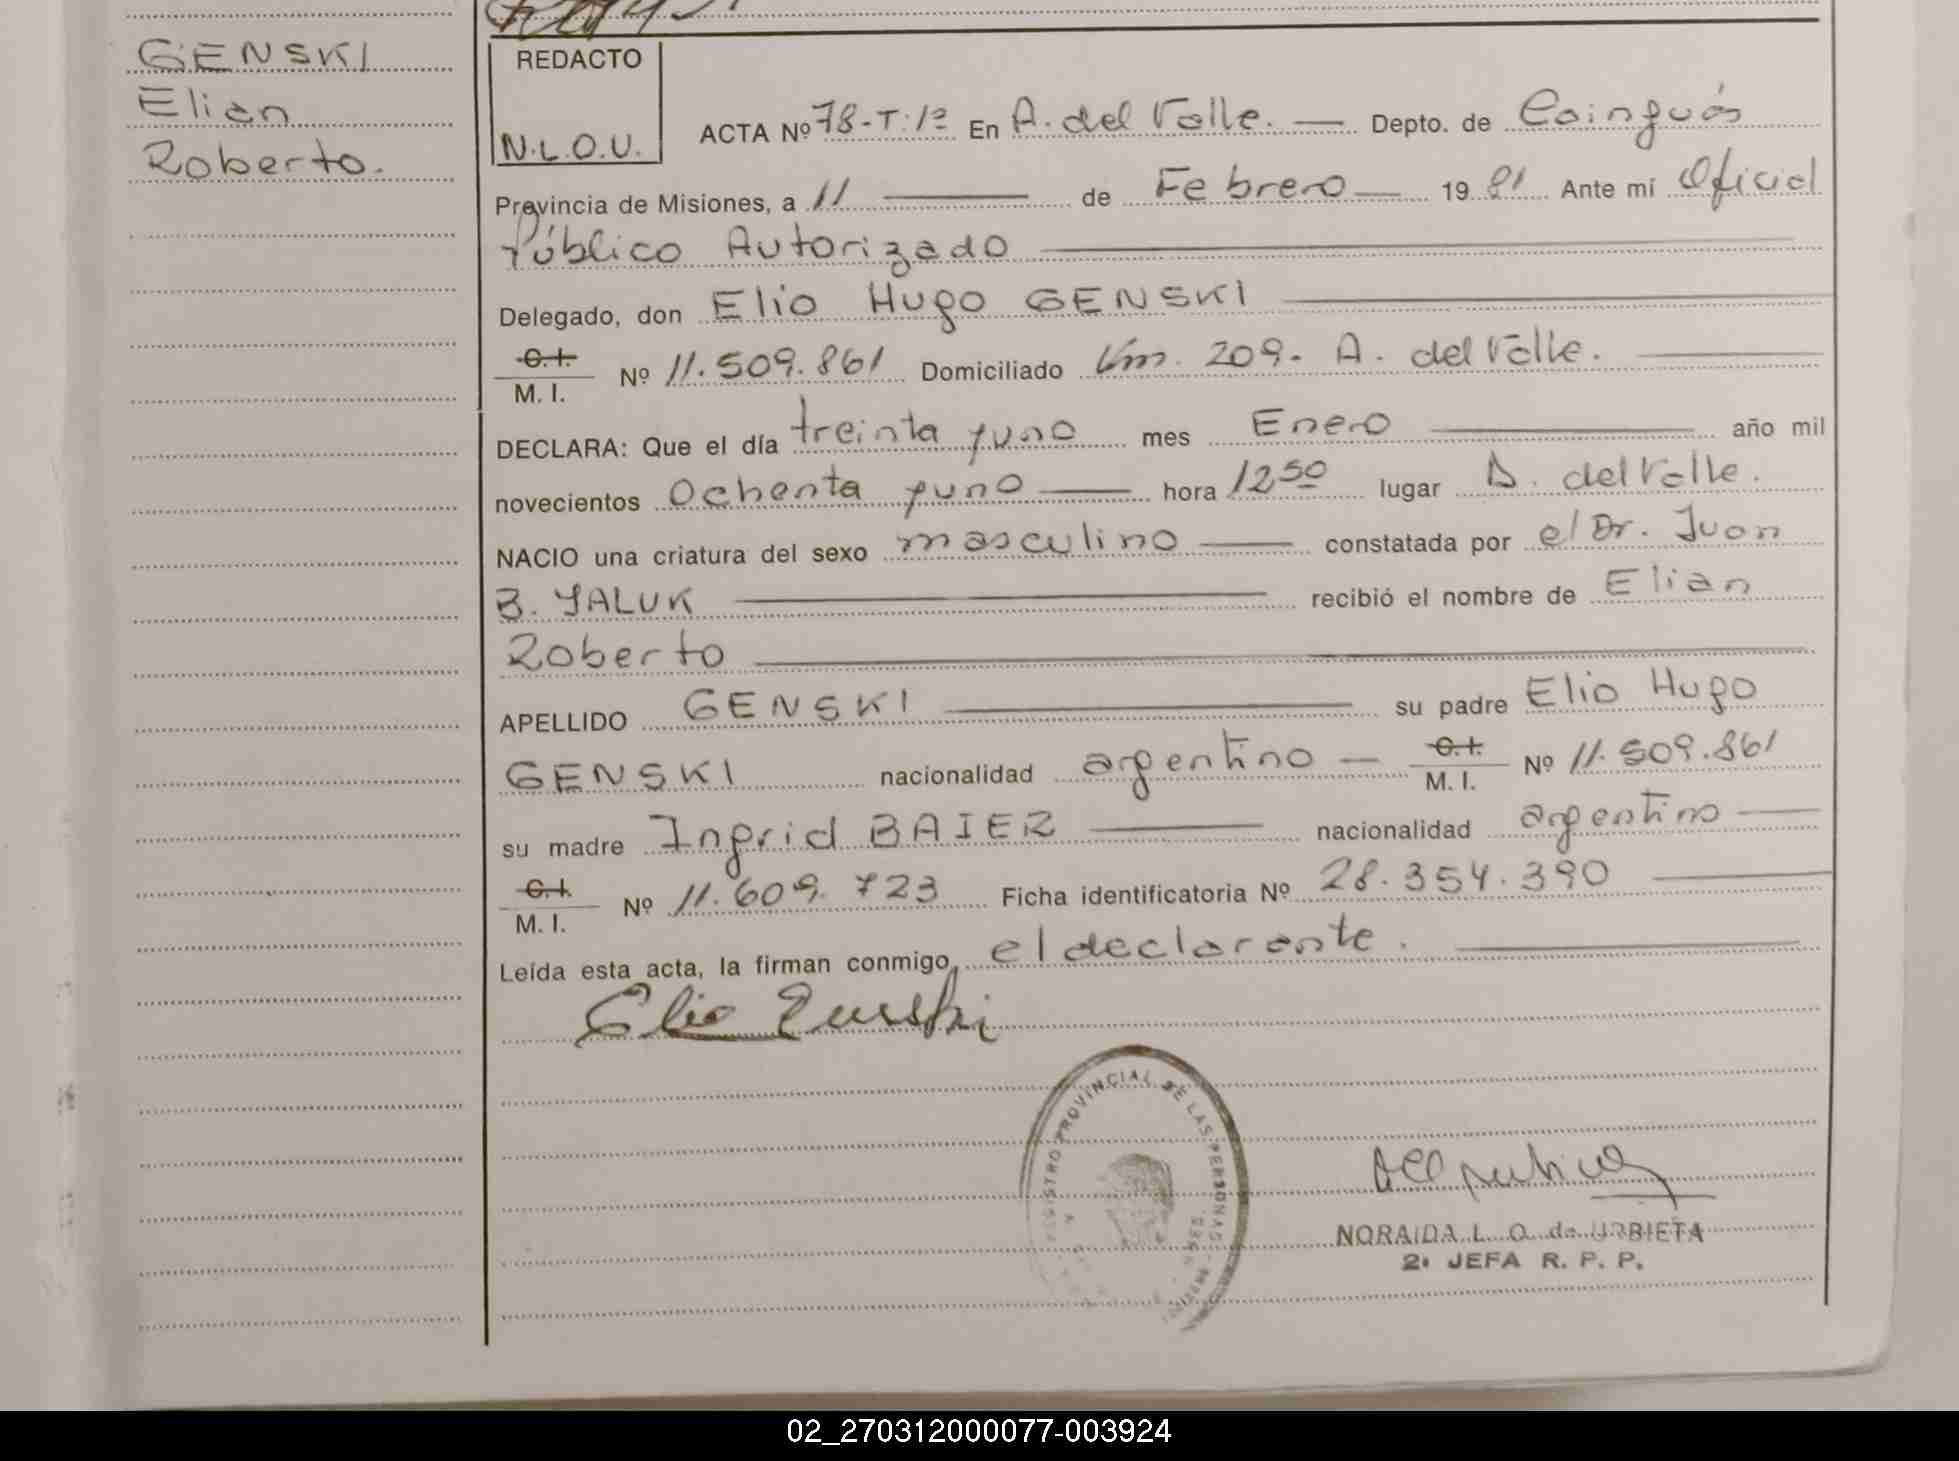 GENSKI
Elian
Roberto.
REDACTO
N.L.O.U.
ACTA Nº 78-T:1º En A. del Valle. — Depto. de Cainguás
Provincia de Misiones, a 11 — de Febrero — 1981 Ante mí Oficial
Público Autorizado —
Delegado, don Elio Hugo GENSKI —
C.I. / M. I. Nº 11.509.861 Domiciliado Km. 209- A. del Valle. —
DECLARA: Que el día treinta yuno mes Enero — año mil
novecientos Ochenta yuno — hora 12 50 lugar A. del Valle.
NACIO una criatura del sexo masculino — constatada por el Dr. Juan
B. YALUK — recibió el nombre de Elian
Roberto —
APELLIDO GENSKI — su padre Elio Hugo
GENSKI nacionalidad argentino — C.I. / M. I. Nº 11.509.861
su madre Ingrid BAIER — nacionalidad argentina —
C.I. / M. I. Nº 11.609.723 Ficha identificatoria Nº 28.354.390 —
Leída esta acta, la firman conmigo, el declarante. —
Elio Genski
REGISTRO PROVINCIAL DE LAS PERSONAS
NORAIDA L. O. de URBIETA
2ª JEFA R. P. P.
02_270312000077-003924